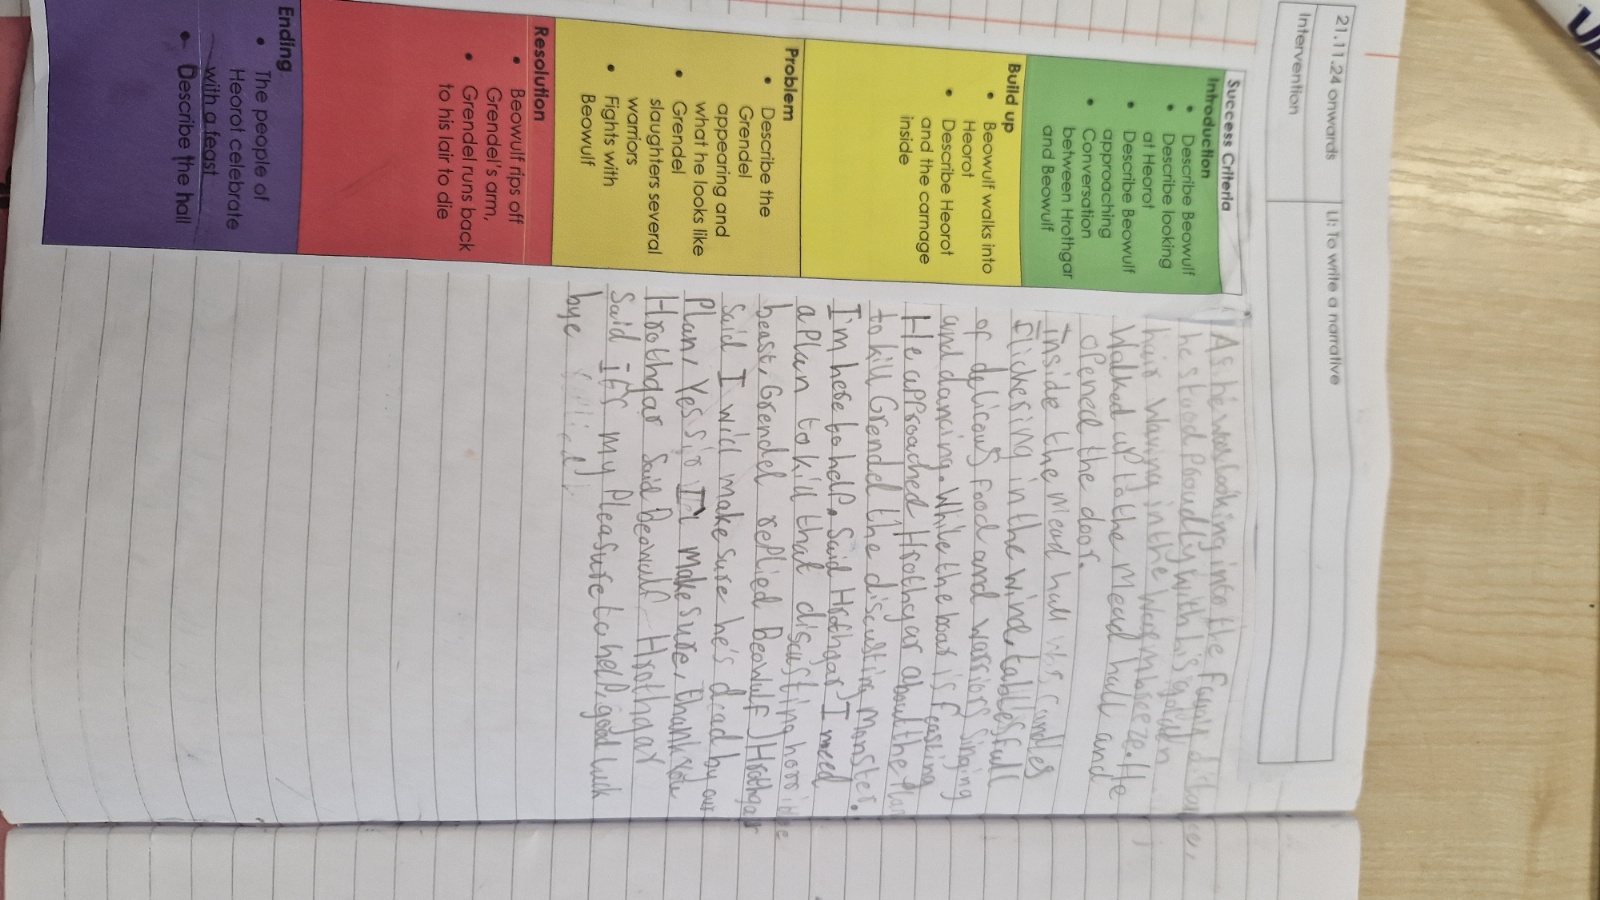 21.11.24 onwards
LI: To write a narrative
Intervention
Success Criteria
Introduction
• Describe Beowulf
• Describe looking
at Heorot
• Describe Beowulf
approaching
• Conversation
between Hrothgar
and Beowulf
Build up
• Beowulf walks into
Heorot
• Describe Heorot
and the carnage
inside
Problem
• Describe the
Grendel
appearing and
what he looks like
• Grendel
slaughters several
warriors
• Fights with
Beowulf
Resolution
• Beowulf rips off
Grendel's arm,
• Grendel runs back
to his lair to die
Ending
• The people of
Heorot celebrate
with a feast
• Describe the hall
As he was looking into the
he stood proudly with his golden
hair waving in the breeze. He
Walked up to the Mead hall and
opened the door.
Inside the Mead hall candles
flickering in the wind, tables full
of delicous food and warriors singing
and dancing. While the is feasting
He approached Hrothgar about the Plan
to kill Grendel the discusting Monster.
I'm here to help. Said Hrothgar) I need
a Plan to kill that discusting
beast, Grendel replied Beowulf) Hrothgar
said I will make sure he's dead by our
Plan, Yes sir make sure, Thank you
Hrothgar said Beowulf Hrothgar
said It's my Pleasure to help, good luck
bye